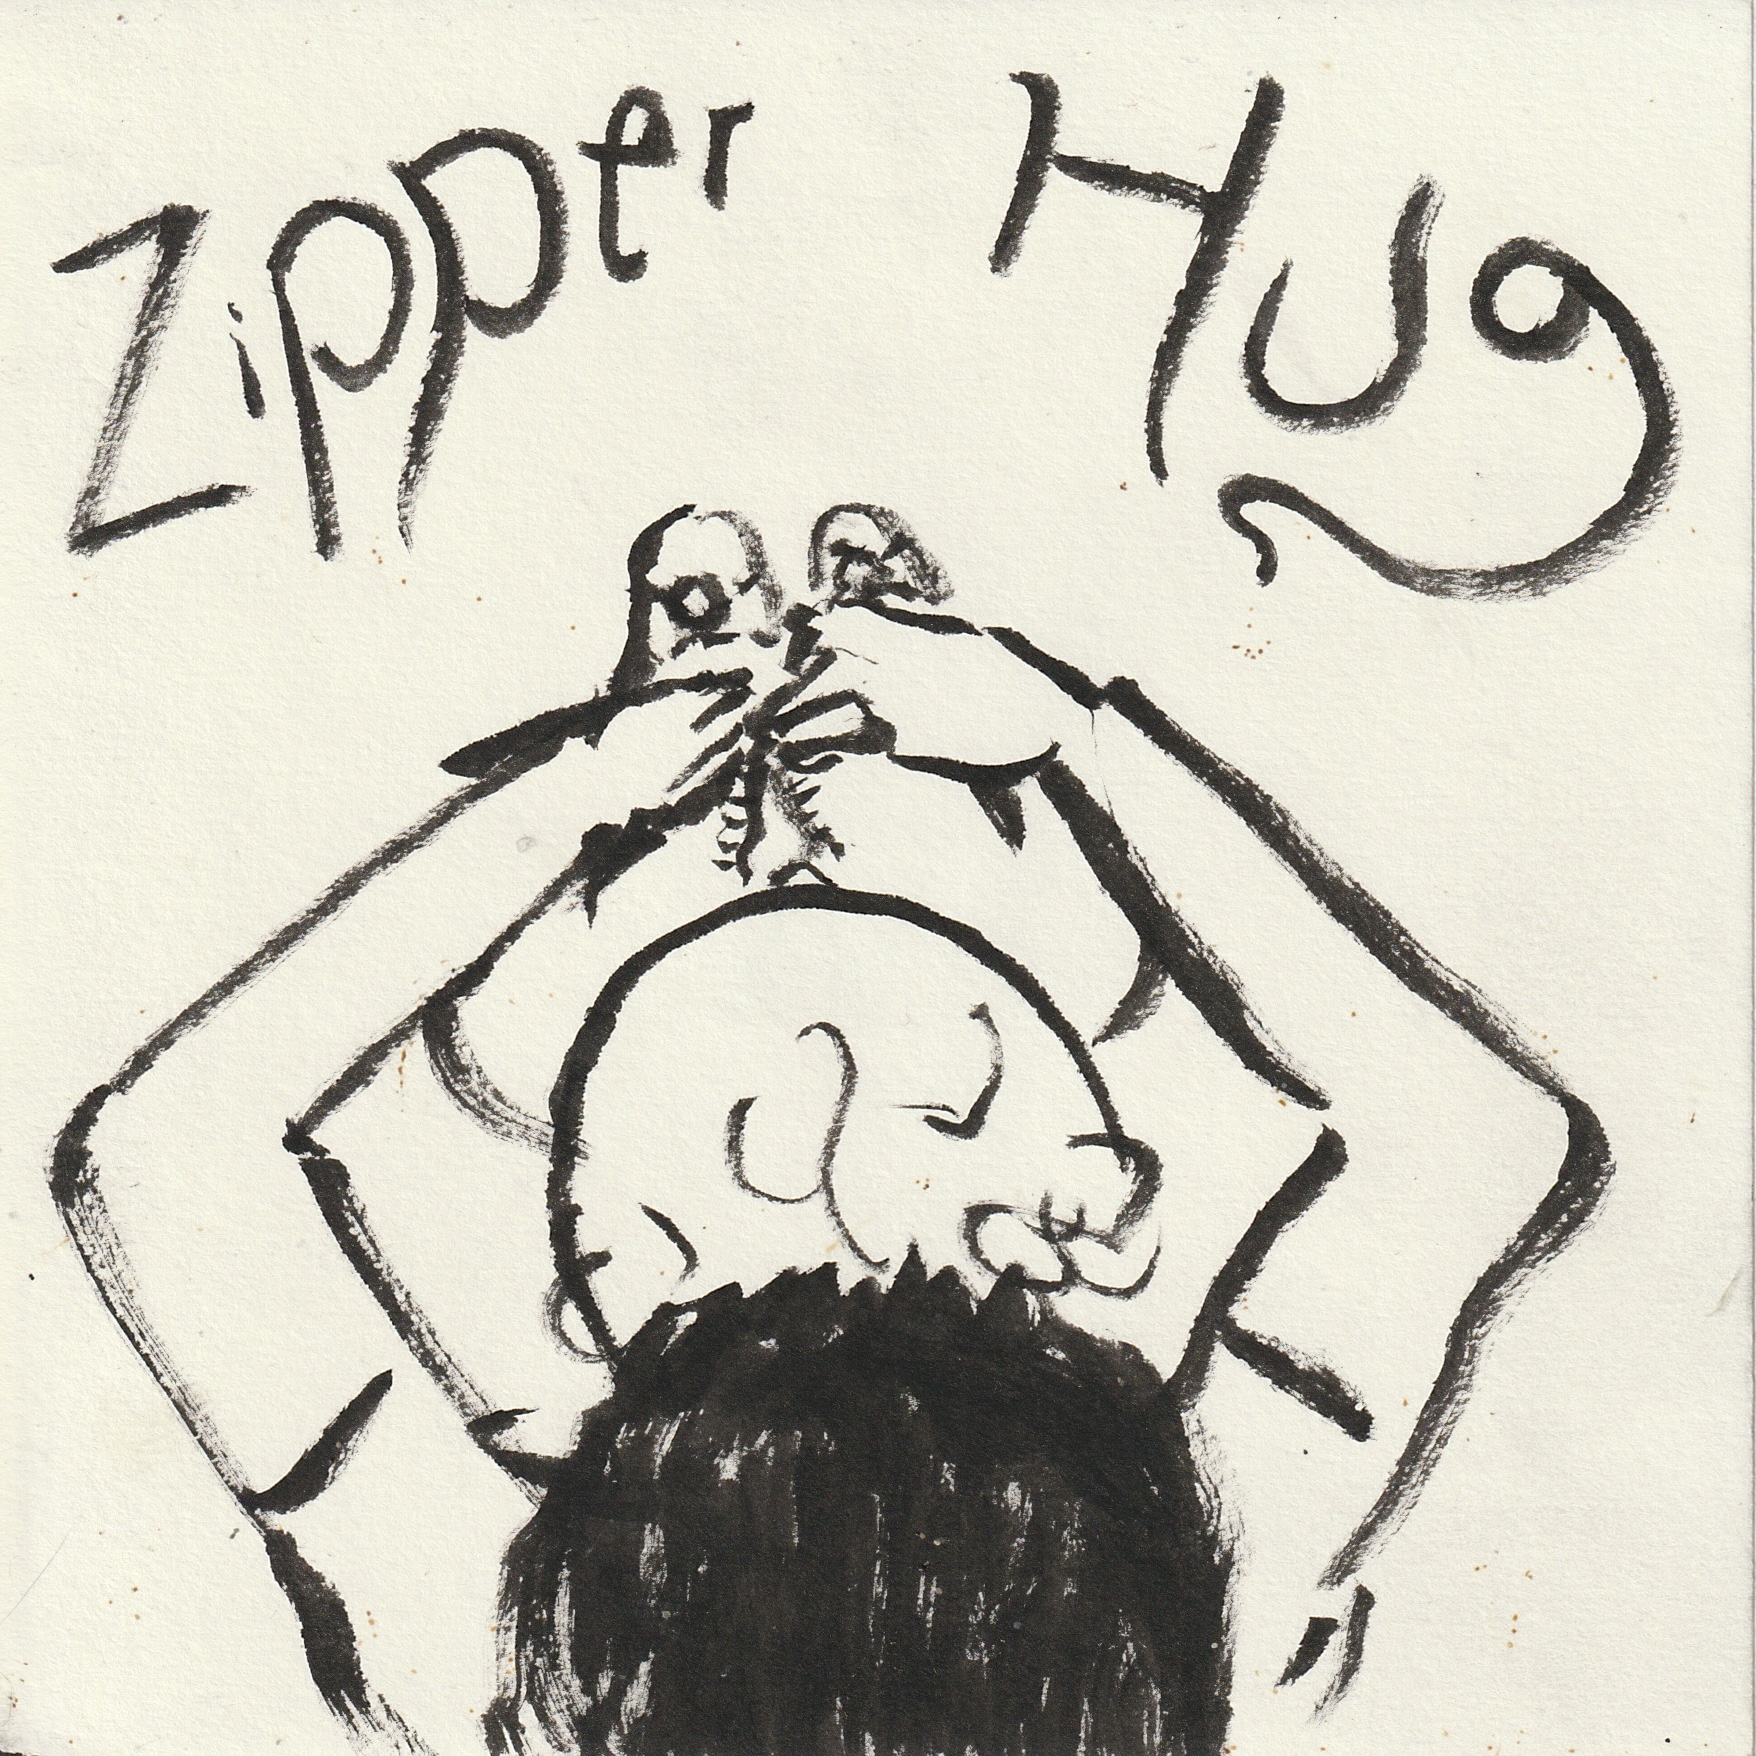 Zipper Hug